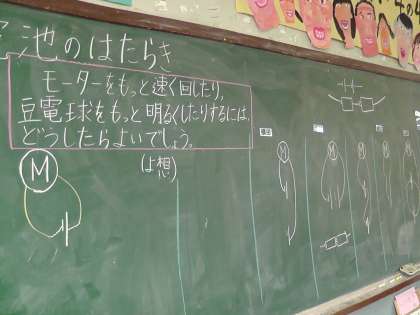 池のはたらき
モーターをもっと速く回したり,
豆電球をもっと明るくしたりするには,
どうしたらよいでしょう。
(よ想)
M
M
M
M